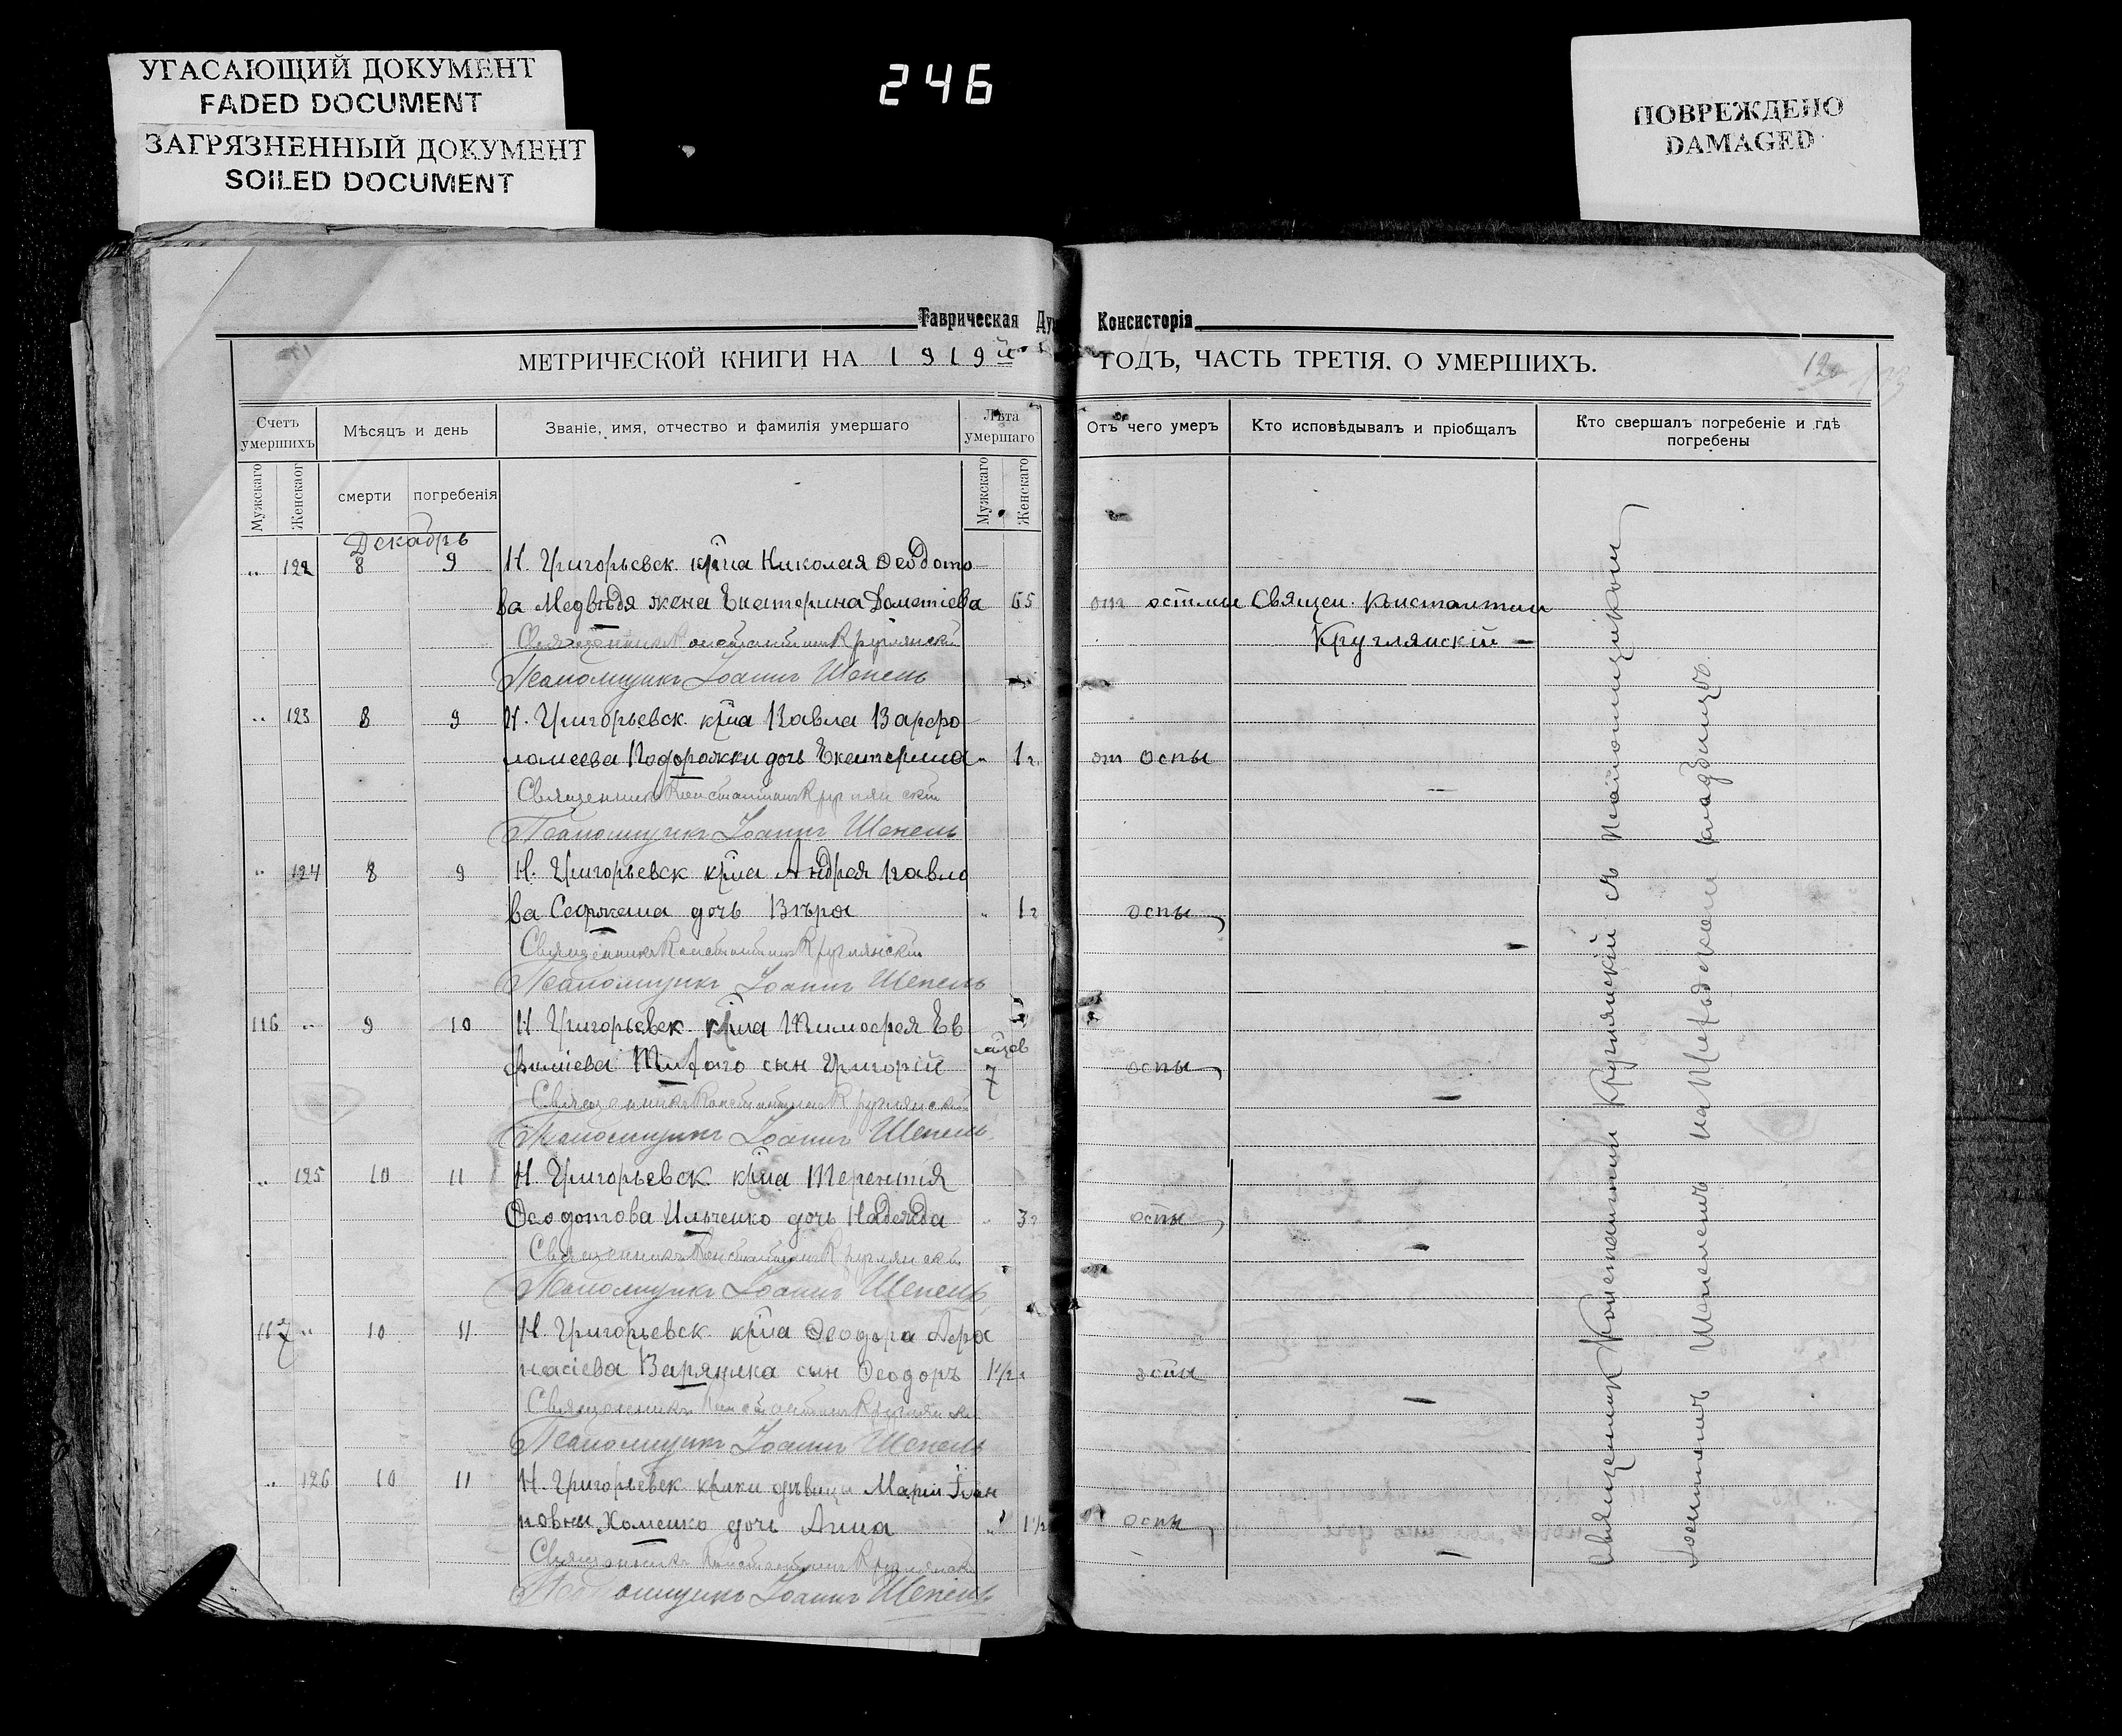 УГАСАЮЩИЙ ДОКУМЕНТ
FADED DOCUMENT
ЗАГРЯЗНЕННЫЙ ДОКУМЕНТ
SOILED DOCUMENT
246
ПОВРЕЖДЕНО
DAMAGED
Таврическая Ду Консисторія
МЕТРИЧЕСКОЙ КНИГИ НА 1919й ГОДЪ, ЧАСТЬ ТРЕТІЯ. О УМЕРШИХЪ.
120
Счетъ умершихъ
Мѣсяцъ и день
Званіе, имя, отчество и фамилія умершаго
Лѣта умершаго
Отъ чего умеръ
Кто исповѣдывалъ и пріобщалъ
Кто свершалъ погребеніе и гдѣ погребены
Мужскаго
Женскаог
смерти
погребенія
Мужскаго
Женскаго
Декабрь
122 8 9 Н. Григорьевск. кр̅на Николая Ѳеодото
ва Медвѣдя жена Екатерина Дометіева 65 от Священ. Констант
Круглянскій
Священникъ Константинъ Круглянскій
Псаломщикъ Іоаннъ Шепель
123 8 9 Н. Григорьевск. кр̅на Павла Варфо
ломеева Подорожки дочь Екатерина 1 г от оспы
Священникъ Константинъ Круглянскій
Псаломщикъ Іоаннъ Шепель
124 8 9 Н. Григорьевск кр̅на Андрея Павло
ва дочь Вѣра 1 г оспы
Священникъ Константинъ Круглянскій
Псаломщикъ Іоаннъ Шепель
116 9 10 Н. Григорьевск. кр̅на Тимофея Ев
фиміева сын Григорій 7 оспы
Священникъ Константинъ Круглянскій
Псаломщикъ Іоаннъ Шепель
125 10 11 Н. Григорьевск. кр̅на Терентія
Ѳеодотова Ильченко дочь Надежда 3 г оспы
Священникъ Константинъ Круглянскій
Псаломщикъ Іоаннъ Шепель
117 10 11 Н. Григорьевск. кр̅на Ѳеодора Афа
насіева сын Ѳеодоръ 1½ г оспы
Священникъ Константинъ Круглянскій
Псаломщикъ Іоаннъ Шепель
126 10 11 Н. Григорьевск. дѣвицы Маріи
Хоменко дочь Анна 1½ оспы
Священникъ Константинъ Круглянскій
Псаломщикъ Іоаннъ Шепель
Священник Константин Круглянскій съ Псаломщиком
Іоанномъ Шепелемъ на кладбищѣ.